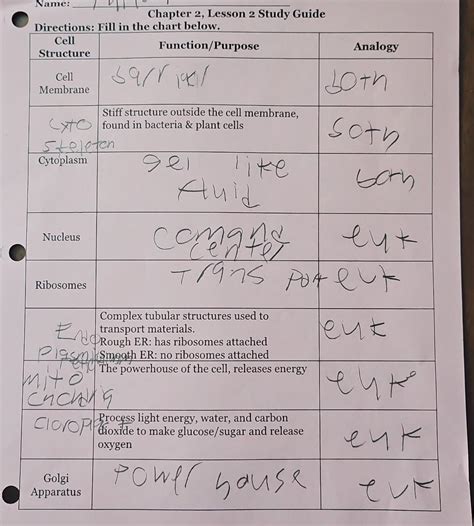 Name:
Chapter 2, Lesson 2 Study Guide
Directions: Fill in the chart below.
Cell Structure Function/Purpose Analogy
Cell Membrane both
Cyto skeleton Stiff structure outside the cell membrane,
found in bacteria & plant cells both
Cytoplasm gel like
fluid both
Nucleus comand
center euk
Ribosomes Trans port euk
Endo Complex tubular structures used to
transport materials.
Rough ER: has ribosomes attached
Smooth ER: no ribosomes attached euk
mito The powerhouse of the cell, releases energy euk
Process light energy, water, and carbon
dioxide to make glucose/sugar and release
oxygen euk
Golgi Apparatus power house euk